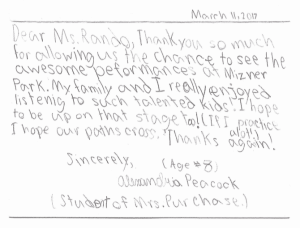 March 11, 2017
Dear Ms. Rando, Thank you so much
for allowing us the chance to see the
awesome peformances at Mizner
Park. My family and I really enjoyed
listenig to such talented kids! I hope
to be up on that stage Too! (If I practice alot!)
I hope our paths cross. Thanks again!
Sincerely, (Age #8)
Alexandria Peacock
(Student of Mrs. Purchase.)